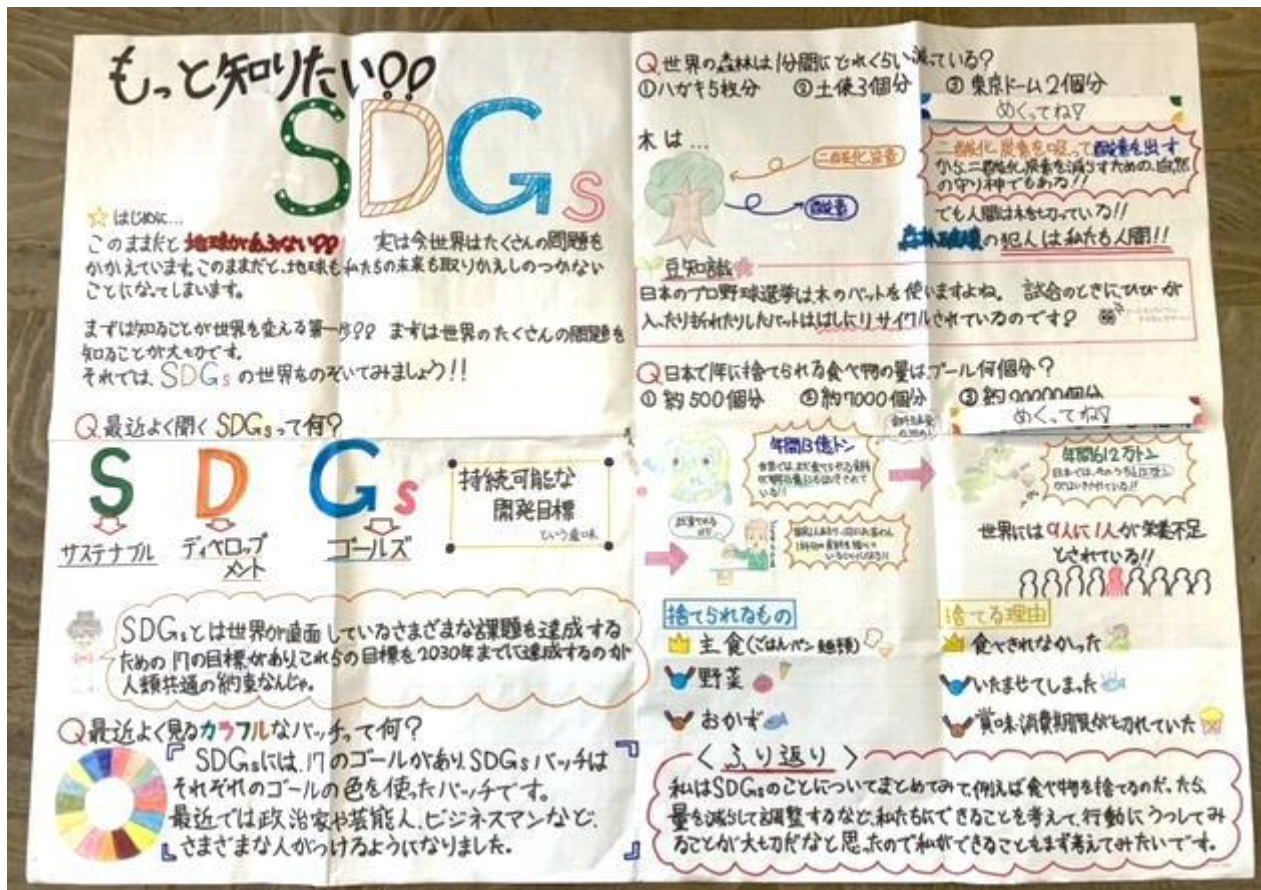 もっと知りたい!!
SDGs
☆はじめに…
このままだと地球があぶない!! 実は今世界はたくさんの問題を
かかえています。このままだと、地球も私たちの未来も取りかえしのつかない
ことになってしまいます。
まずは知ることが世界を変える第一歩!! まずは世界のたくさんの問題を
知ることが大切です。
それでは、SDGsの世界をのぞいてみましょう!!
Q.最近よく聞くSDGsって何?
S D G s
サステナブル ディベロップ
メント
ゴールズ
持続可能な
開発目標
という意味
SDGsとは世界が直面しているさまざまな課題を達成する
ための17の目標があり、これらの目標を2030年までに達成するのが
人類共通の約束なんじゃ。
Q.最近よく見るカラフルなバッチって何?
『SDGsには、17のゴールがあり、SDGsバッチは
それぞれのゴールの色を使ったバッチです。
最近では政治家や芸能人、ビジネスマンなど、
さまざまな人がつけるようになりました。』
Q.世界の森林は1分間にどれくらい減っている?
①ハガキ5枚分 ②土俵3個分 ③東京ドーム2個分
めくってね
木は…
二酸化炭素
酸素
二酸化炭素を吸って酸素を出す
から、二酸化炭素を減らすための、自然
の守り神でもある!!
でも人間は木を切っている!!
森林破壊の犯人は私たち人間!!
豆知識
日本のプロ野球選挙は木のバットを使いますよね。 試合のときにひびが
入ったり折れたりしたバットははしにリサイクルされているのです?
Q.日本で1年に捨てられる食べ物の量は、プール何個分?
①約500個分 ②約7000個分 ③約20000個分
めくってね
年間13億トン
年間612万トン
世界には9人に1人が栄養不足
とされている!!
捨てられるもの
主食(ごはんパン麺類)
野菜
おかず
捨てる理由
食べきれなかった
いたませてしまった
賞味・消費期限が切れていた
〈ふり返り〉
私はSDGsのことについてまとめてみて、例えば食べ物を捨てるのだったら、
量を減らして調整するなど、私たちにできることを考えて、行動にうつしてみ
ることが大切だなと思ったので私ができることもまず考えてみたいです。